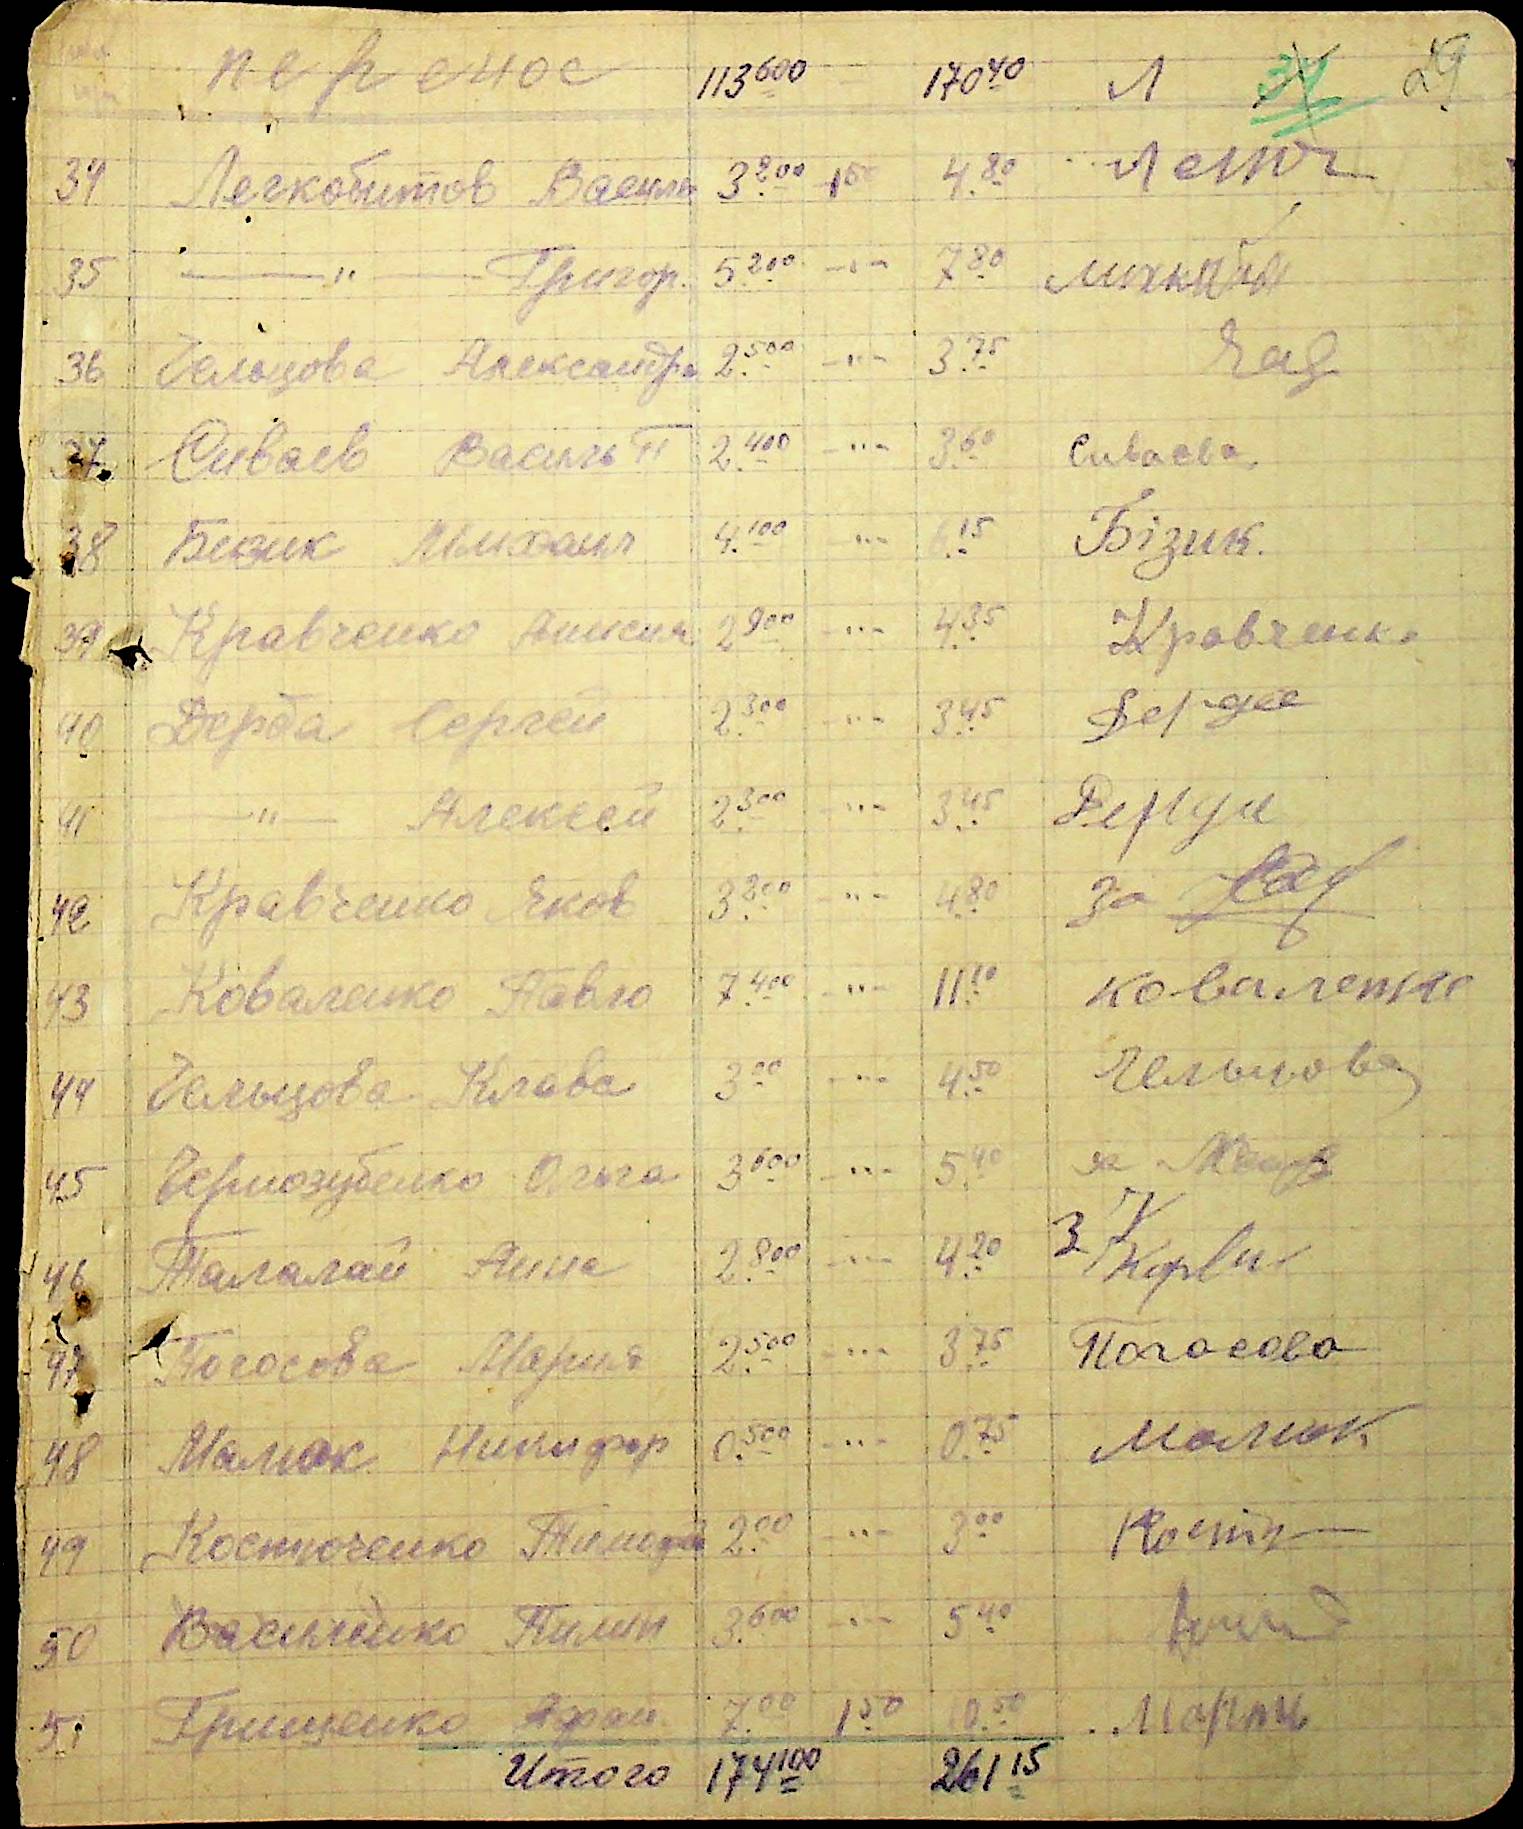 перенос 113 600 — 170 40 Л 34 29
34 Легкобитов Василь 3.200 150 4.80
35 —"— Григор. 5.200 —"— 7.80
36 Чельцова Александра 2.500 —"— 3.75
37. Сиваев Василь П 2.400 —"— 3.60 Сиваева.
38 Бизик Михаил 4.100 —"— 6.15 Бізик.
39 Кравченко Анисия 2.900 —"— 4.35 Кравченко
40 Дерда Сергей 2.300 —"— 3.45 Дердае
41 —"— Алексей 2.300 —"— 3.45 Дерди
42 Кравченко Яков 3.200 —"— 4.80 За
43 Коваленко Павло 7.400 —"— 11.10 Коваленко
44 Чельцова Клава 3.00 —"— 4.50 Чельцова
45 Чернозубенко Ольга 3.600 —"— 5.40 за
46 Талалай Анна 2.800 —"— 4.20 З
47 Погосова Мария 2.500 —"— 3.75 Погосова
48 Малюк Никифор 0.500 —"— 0.75 Малюк
49 Костюченко Тимофей 2.00 —"— 3.00
50 Василенко Пилип 3.600 —"— 5.40
51 Грищенко Афан. 7.00 1 50 10.50
Итого 174 100 261 15